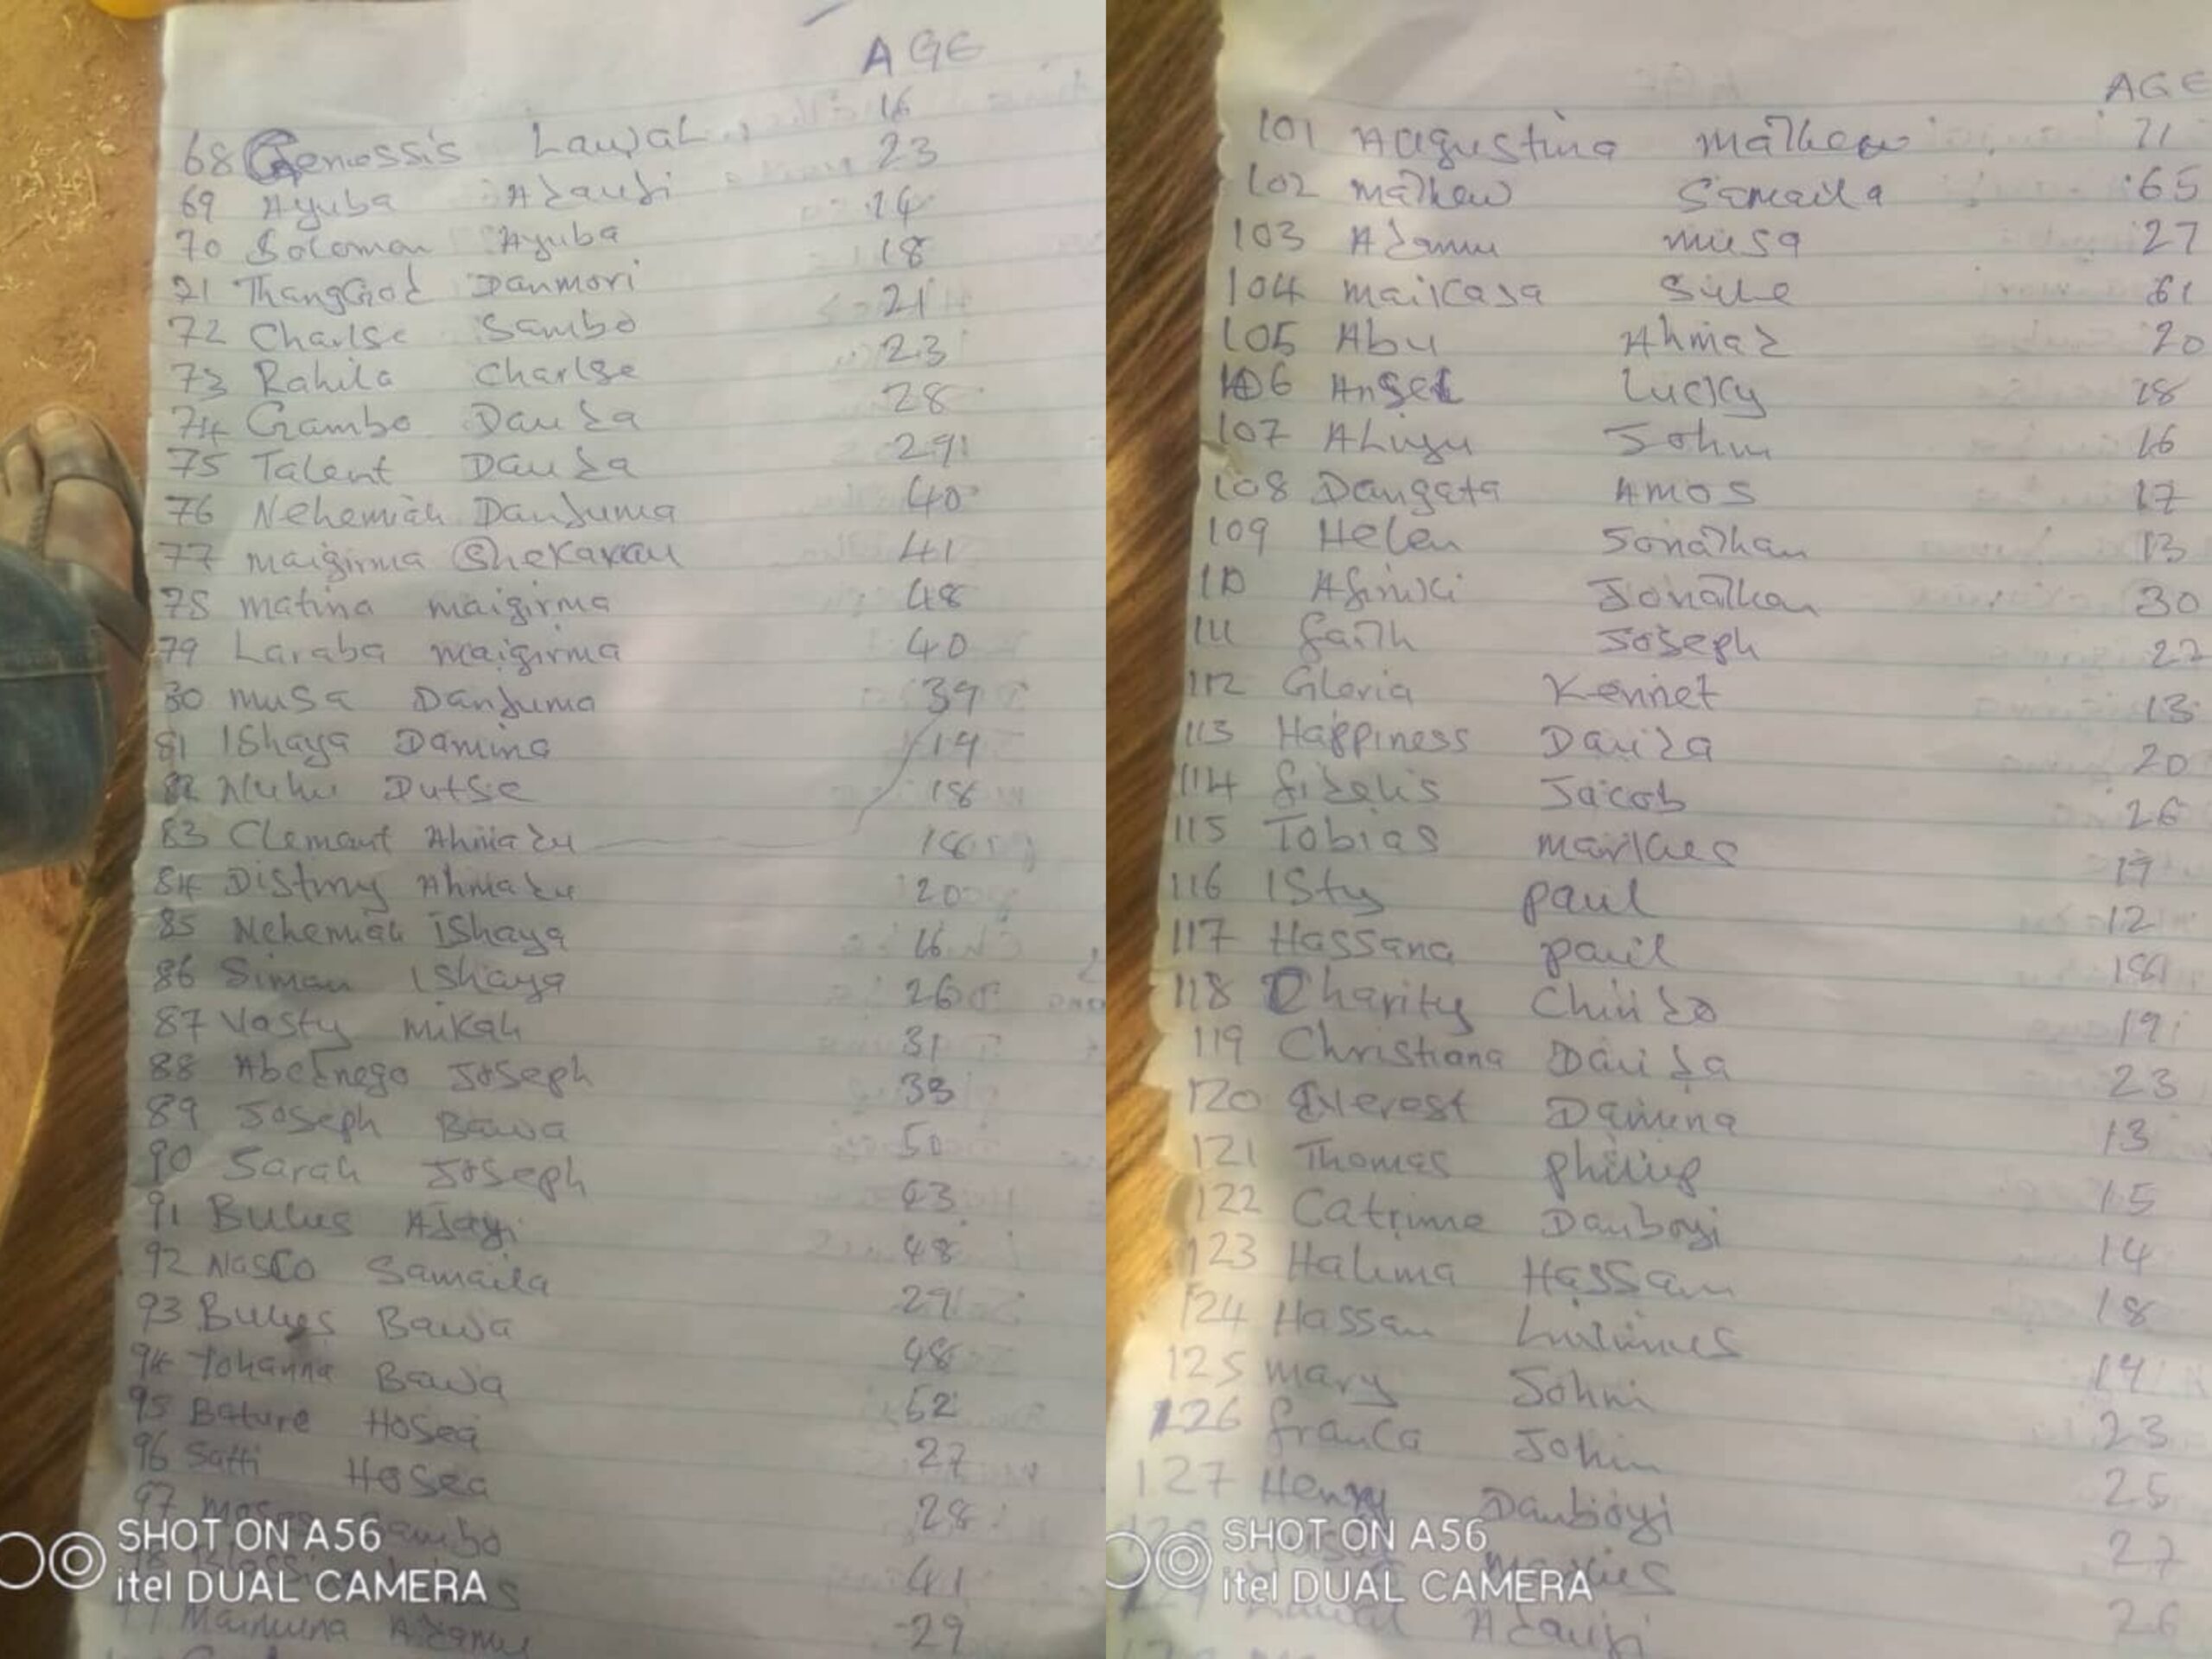 AGE
68 Genossis Lawal 16
69 Ayuba Adauji 23
70 Solomon Ayuba 14
71 ThangGod Danmori 18
72 Charlse Sambo 21
73 Rahila Charlse 23
74 Gambo Dauda 28
75 Talent Dauda 29
76 Nehemiah Danjuma 40
77 maigirma Shekarau 41
78 matina maigirma 48
79 Laraba maigirma 40
80 musa Danjuma 39
81 Ishaya Damina 14
82 Nuhu Dutse 18
83 Clemant Ahmadu 18
84 Distiny Ahmadu 20
85 Nehemiah Ishaya 16
86 Siman Ishaya 26
87 Vasty mikah 31
88 Abednego Joseph 33
89 Joseph Bawa 50
90 Sarah Joseph 43
91 Bulus Ajayi 48
92 Nasco Samaila 29
93 Bulus Bawa 48
94 Yohanna Bawa 62
95 Bature Hosea 27
96 Satti Hosea 28
97 Moses 41
Maimuna Adamu 29
SHOT ON A56
itel DUAL CAMERA
AGE
101 Augustina mathew 71
102 mathew Samaila 65
103 Adamu musa 27
104 maikasa Sule 61
105 Abu Ahmad 20
106 Angel Lucky 18
107 Aliyu John 16
108 Dangata Amos 17
109 Helen Jonathan 13
110 Afiniki Jonathan 30
111 faith Joseph 27
112 Gloria Kennet 13
113 Happiness Dauda 20
114 fidelis Jacob 26
115 Tobias markus 19
116 Isty paul 12
117 Hassana paul 18
118 Charity Chindo 19
119 Christiana Dauda 23
120 Everest Damina 13
121 Thomas philip 15
122 Catrine Danboyi 14
123 Halima Hassan 18
124 Hassan 14
125 mary John 23
126 franca John 25
127 Henry Danboyi 27
Adauji 26
SHOT ON A56
itel DUAL CAMERA